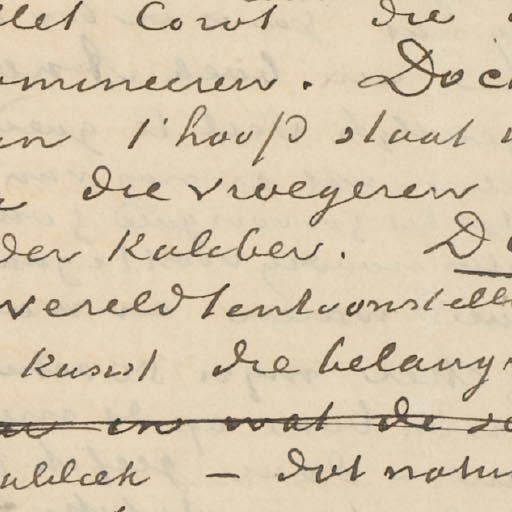 llet Corot die
omineeren. Doch
an 't hoofd staat
die vroegeren
der kaliber. D
wereldtentoonstelli
kunst die belangr
en in wat de sc
ubliek — dat natu